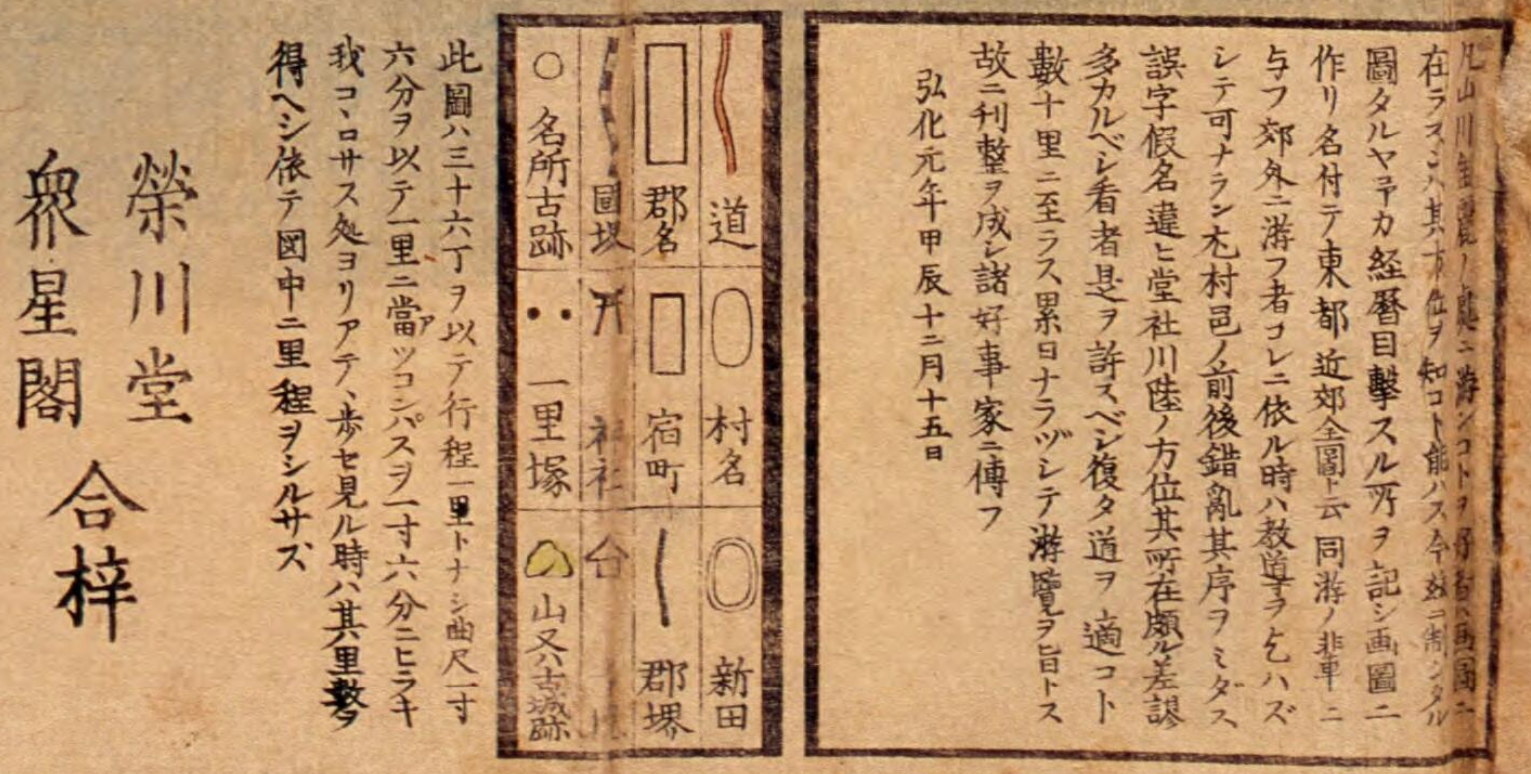 凡山川ノ處ニ游ンコトヲ好者ハ画圖ニ
在ラスンハ其方位ヲ知コト能ハス今玆ニ制シタル
圖タルヤ予カ経暦目擊スル所ヲ記シ画圖ニ
作リ名付テ東都近郊全圖ト云同游ノ非車ニ
与フ郊外ニ游フ者コレニ依ル時ハ教導ヲ乞ハズ
シテ可ナラン尤村邑ノ前後錯亂其序ヲミダス
誤字假名違ヒ堂社川陸ノ方位其所在頗ル差謬
多カルベシ看者是ヲ許スベシ復タ道ヲ適コト
數十里ニ至ラス累日ナラヅシテ游覽ヲ旨トス
故ニ刋整ヲ成シ諸好事家ニ傳フ
弘化元年甲辰十二月十五日
道 村名 新田
郡名 宿町 郡堺
國堺 神社
名所古跡 一里塚 山又ハ古城跡
此圖ハ三十六丁ヲ以テ行程一里トナシ曲尺一寸
六分ヲ以テ一里ニ當ツコンパスヲ一寸六分ニヒラキ
我コヽロサス処ヨリアテヽ歩セ見ル時ハ其里數ヲ
得ヘシ依テ図中ニ里程ヲシルサズ
榮川堂
衆星閣
合梓